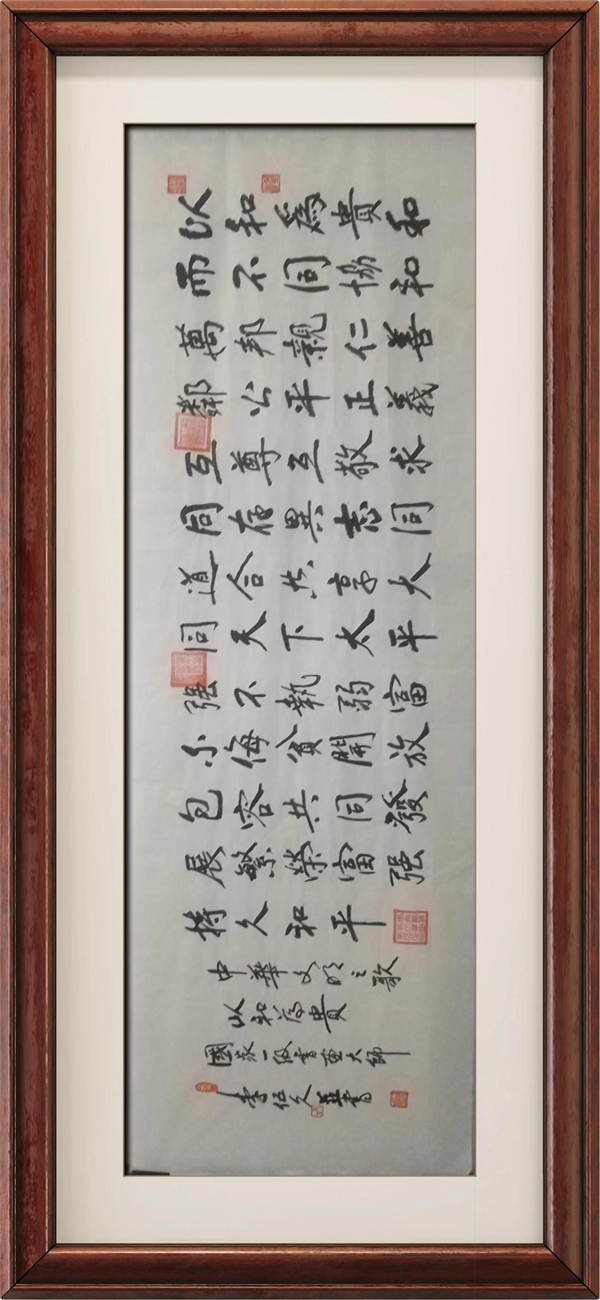 以和為貴和
而不同協和
萬邦親仁善
鄰公平正義
互尊互敬求
同存異志同
道合共享大
同天下太平
強不執弱富
不侮貧開放
包容共同發
展繁榮富強
持久和平
中華文明之歌
以和為貴
國家一級書畫大師
李久書